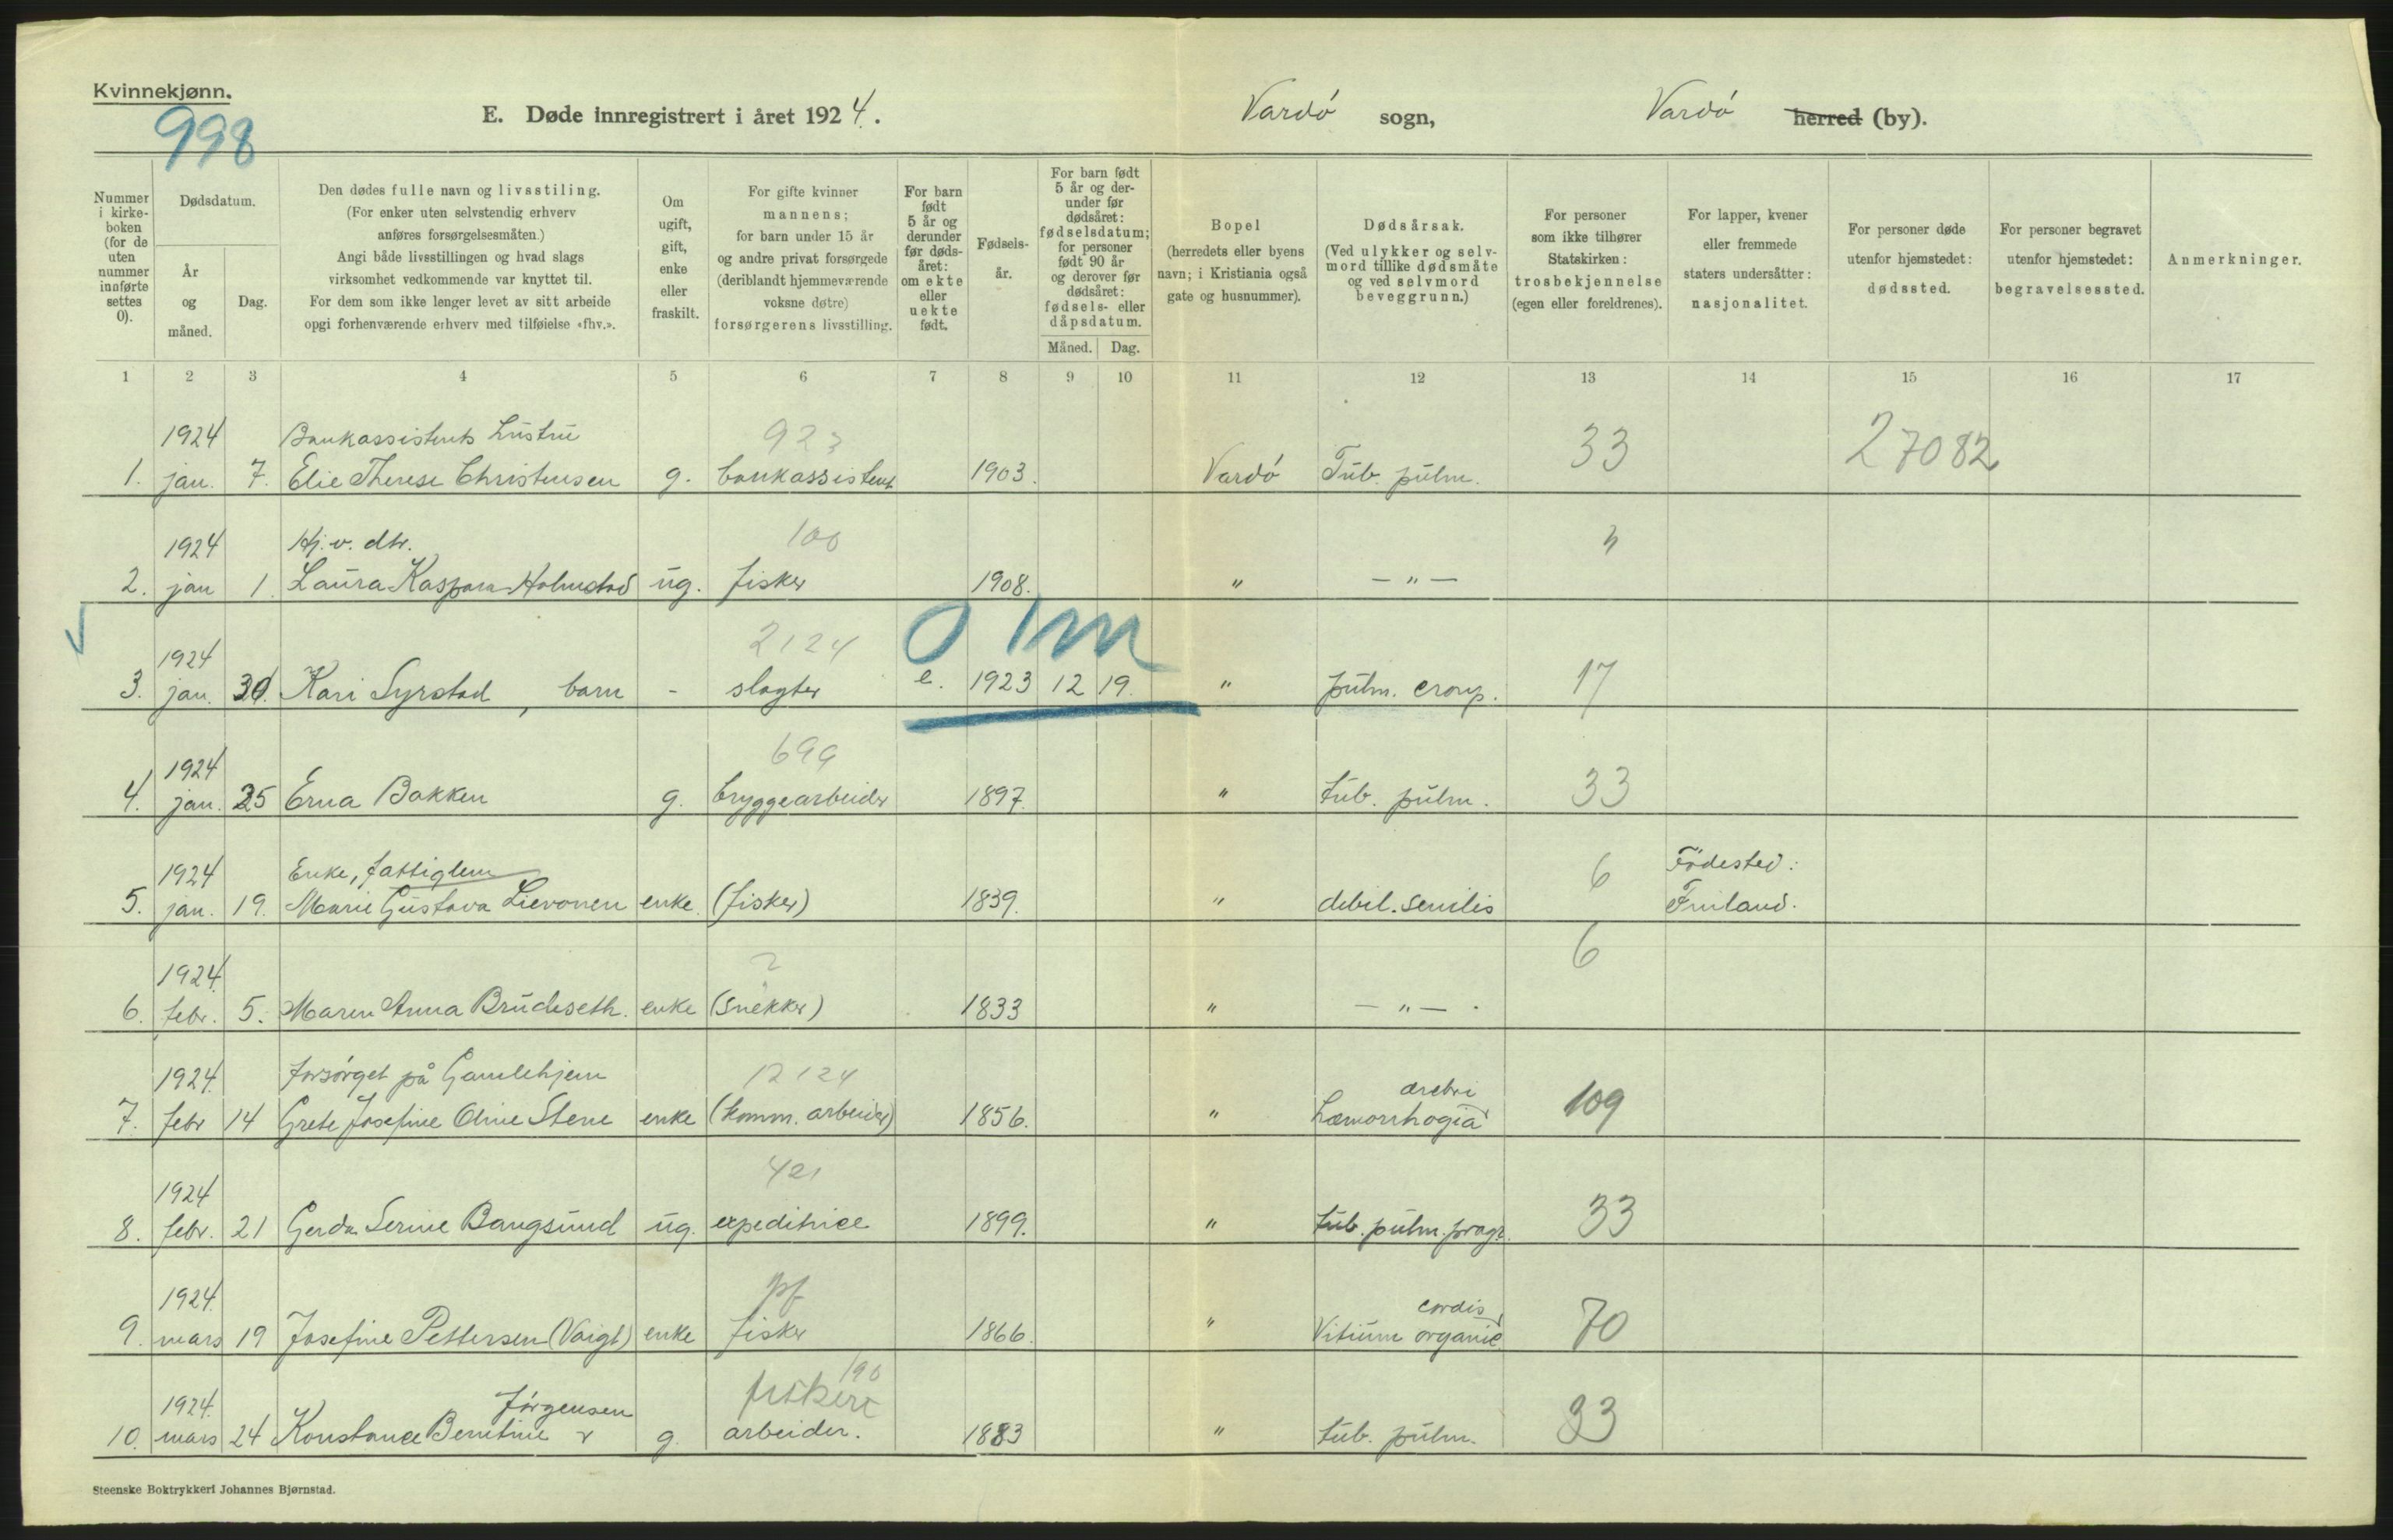 Kvinnekjønn.
998
E. Døde innregistrert i året 1924.
Vardø sogn,
Vardø herred (by).
Nummer i kirke-boken (for de uten nummer innførte settes 0).
Dødsdatum.
År og måned.
Dag.
Den dødes fulle navn og livsstiling.
(For enker uten selvstendig erhverv
anføres forsørgelsesmåten.)
Angi både livsstillingen og hvad slags
virksomhet vedkommende var knyttet til.
For dem som ikke lenger levet av sitt arbeide
opgi forhenværende erhverv med tilføielse «fhv.».
Om ugift, gift, enke eller fraskilt.
For gifte kvinner
mannens;
for barn under 15 år
og andre privat forsørgede
(deriblandt hjemmeværende
voksne døtre)
forsørgerens livsstilling.
For barn født 5 år og derunder før døds-året: om ekte eller uekte født.
Fødsels-år.
For barn født 5 år og der-under før dødsåret: fødselsdatum; for personer født 90 år og derover før dødsåret: fødsels- eller dåpsdatum.
Måned. Dag.
Bopel
(herredets eller byens
navn; i Kristiania også
gate og husnummer).
Dødsårsak.
(Ved ulykker og selv-
mord tillike dødsmåte
og ved selvmord
beveggrunn.)
For personer
som ikke tilhører
Statskirken:
trosbekjennelse
(egen eller foreldrenes).
For lapper, kvener
eller fremmede
staters undersåtter:
nasjonalitet.
For personer døde
utenfor hjemstedet:
dødssted.
For personer begravet
utenfor hjemstedet:
begravelsessted.
Anmerkninger.
1 2 3 4 5 6 7 8 9 10 11 12 13 14 15 16 17
1924 Bankassistents hustru 923 33 27082
1. jan. 7. Elie Therese Christensen g. bankassistent 1903. Vardø Tub. pulm.
1924 Hj. v. dtr. 100 "
2. jan 1. Laura Kaspara Holmstad ug. fisker 1908. " — " —
0 1m
1924 2124
3. jan. 30. Kari Syrstad, barn - slagter e. 1923 12 19. " pulm. croup. 17
1924 699
4. jan. 25 Erna Bakken g. bryggearbeider 1897. " tub. pulm. 33
1924 Enke, fattiglem 6 Fødested:
5. jan. 19. Marie Gustava Lievonen enke (fisker) 1839. " debil. senilis Finland.
1924. 2 6
6. febr. 5. Maren Anna Brudeseth. enke (snekker) 1833 " — " — .
1924. Forsørget på Gamlehjem 12124
7. febr 14 Grete Josefine Oline Stene enke (komm. arbeider) 1856. " hæmorrhagia 109
1924 421
8. febr. 21 Gerda Serine Bangsund ug. expeditrice 1899. " tub. pulm. progr. 33
1924. pf cordis
9. mars 19 Josefine Pettersen (Voigt) enke fisker 1866. " Vitium organic 70
1924. Jørgensen fiskeri 190
10. mars 24 Konstance Berntine v g. arbeider. 1883 " tub. pulm. 33
Steenske Boktrykkeri Johannes Bjørnstad.